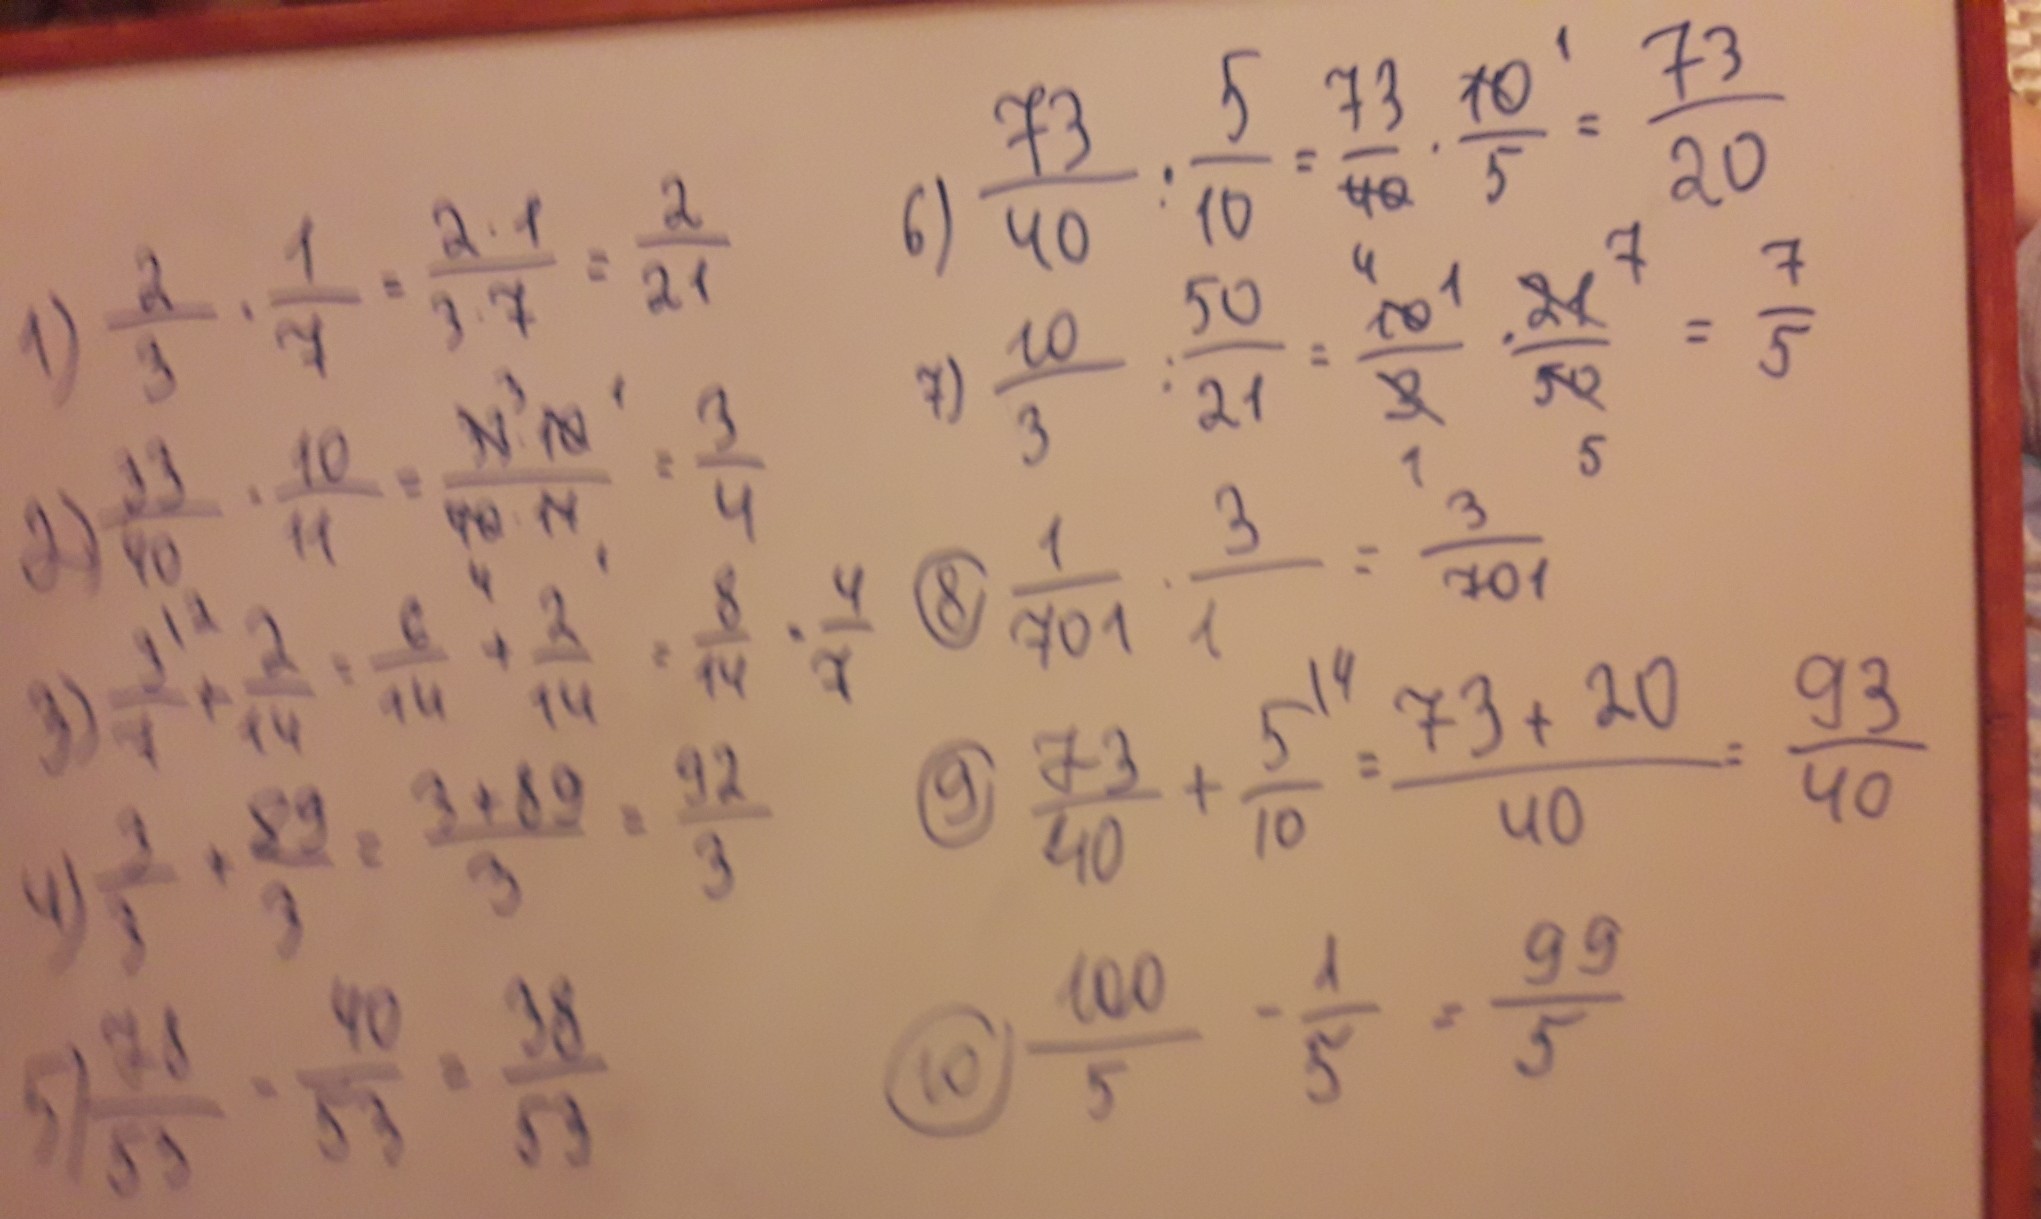 1) 2/3 · 1/7 = 2·1/3·7 = 2/21
2) 33/40 · 10/11 = 33³·10¹/40₄·11₁ = 3/4
3) 3^{12}/7 + 2/14 = 6/14 + 2/14 = 8/14 · 4/7
4) 3/3 + 89/3 = 3+89/3 = 92/3
5) 78/53 - 40/53 = 38/53
6) 73/40 : 5/10 = 73/40₄ · 10¹/5 = 73/20
7) 10/3 : 50/21 = 10¹/3₁ · 21⁷/50₅ = 7/5
8) 1/701 · 3/1 = 3/701
9) 73/40 + 5^{14}/10 = 73+20/40 = 93/40
10) 100/5 - 1/5 = 99/5